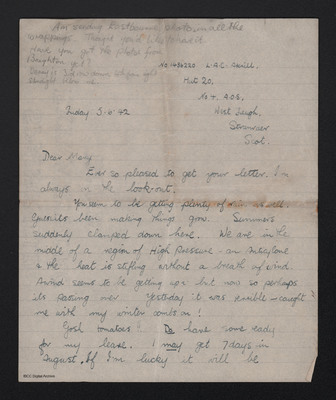 Have you got the photos from
Brighton yet?
No 1486220 L.A.C.
Hut 20,
No 4. AOS,
West Freugh.
Stranraer
Scot.
Friday 5.6.42
Dear Mary
Ever so pleased to get your letter. I'm
always on the look-out.
You seem to be getting plenty of
been making things grow. Summers
suddenly clamped down here. We are in the
middle of a region of High Pressure - an Anticyclone
& the heat is stifling without a breath of wind.
Wind seems to be getting up a bit now so perhaps
its passing over Yesterday it was horrible - caught
me with my winter combs on!
Gosh tomatoes! Do have some ready
for my leave. I may get 7 days in
August. If I'm lucky it will be
IBCC Digital Archive